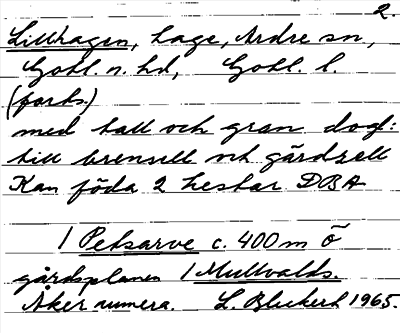 2.
Lillhagen, hage, Ardre sn,
Gotl. n. hd, Gotl. l.
(forts.)
med tall och gran dogl:
till bränsell och gärdsell
Kan föda 2 hestar DBA
/ Petsarve c. 400 m Ö
gårdsplanen / Mullvalds.
Åker numera. L. 1965.